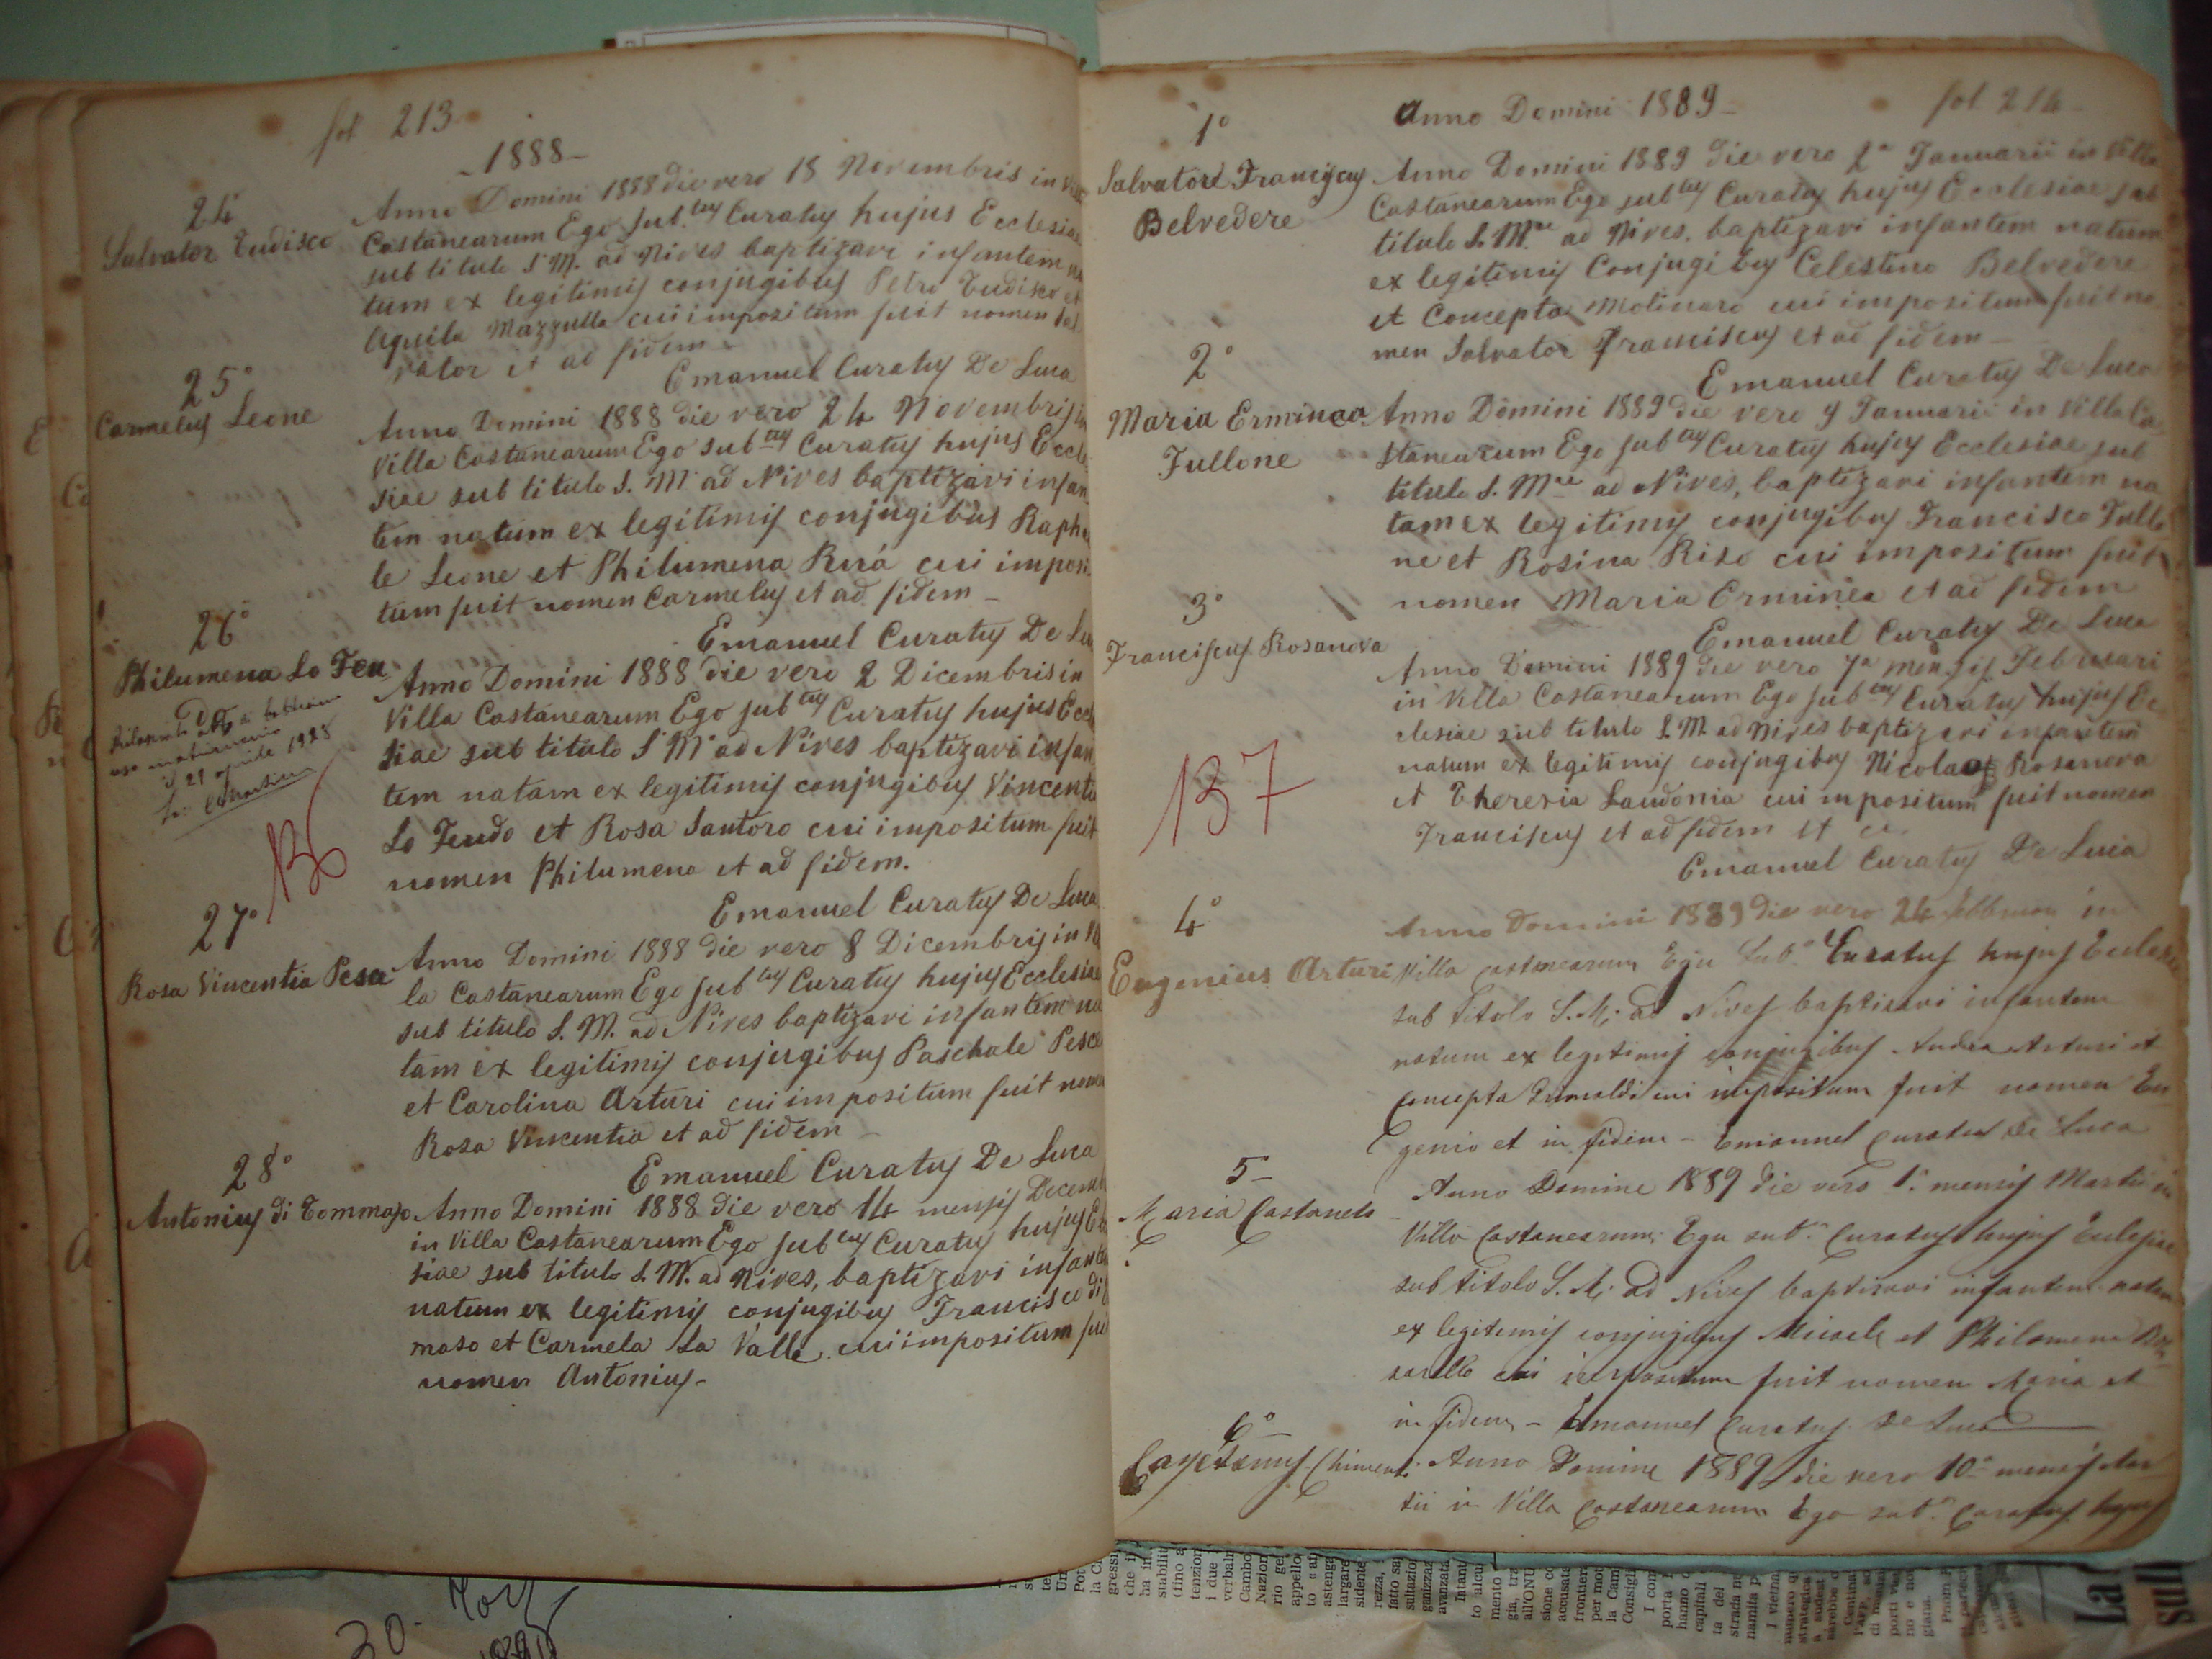 fol 213
-1888-
24
Salvator Tudisco
Anno Domini 1888 die vero 18 Novembris in
Castanearum Ego Sub.tus Curatus hujus Ecclesiae
sub titulo S. M. ad Nives baptizavi infantem na
tum ex legitimis conjugibus Petro Tudisco et
Aquila Mazzulla cui impositum fuit nomen Sal
vator et ad fidem -
Emanuel Curatus De Luca
25°
Carmelus Leone
Anno Domini 1888 die vero 24 Novembris in
Villa Castanearum Ego subtus Curatus hujus Eccle
siae sub titulo S. M. ad Nives baptizavi infan
tem natum ex legitimis conjugibus Rapha
le Leone et Philumena Ruá cui imposi
tum fuit nomen Carmelus et ad fidem -
Emanuel Curatus De Lu
26°
Philumena Lo Feu
do
uso matrimonio
il 21 aprile 1928
136
Anno Domini 1888 die vero 2 Dicembris in
Villa Castanearum Ego subtus Curatus hujus Eccl
siae sub titulo S. M. ad Nives baptizavi infan
tem natam ex legitimis conjugibus Vincento
Lo Feudo et Rosa Santoro cui impositum fuit
nomen Philumena et ad fidem.
Emanuel Curatus De Luca
27°
Rosa Vincentia Pesce
Anno Domini 1888 die vero 8 Dicembris in Vil
la Castanearum Ego subtus Curatus hujus Ecclesiae
sub titulo S. M. ad Nives baptizavi infantem na
tam ex legitimis conjugibus Paschale Pesce
et Carolina Arturi cui impositum fuit nomen
Rosa Vincentia et ad fidem -
Emanuel Curatus De Luca
28°
Antonius di Tommaso
Anno Domini 1888 die vero 14 mensis Decemb
in Villa Castanearum Ego subtus Curatus hujus Ec
siae sub titulo S. M. ad Nives, baptizavi infantem
natum ex legitimis conjugibus Francisco di
maso et Carmela La Valle cui impositum fui
nomen Antonius-
Anno Domini 1889-
fol 214-
1°
Salvatore Franciscus
Belvedere
Anno Domini 1889 die vero 2a Januarii in Villa
Castanearum Ego subtus Curatus hujus Ecclesiae sub
titulo S. Mae ad Nives. baptizavi infantem natum
ex legitimis Conjugibus Celestino Belvedere
et Concepta Molinaro cui impositum fuit no
men Salvator Franciscus et ad fidem -
Emanuel Curatus De Luca
2°
Maria Erminea
Fullone
Anno Domini 1889 die vero 9 Januarii in Villa Ca
stanearum Ego subtus Curatus hujus Ecclesiae sub
titulo S. Mae ad Nives, baptizavi infantem na
tam ex legitimis conjugibus Francisco Fullo
ne et Rosina Riso cui impositum fuit
nomen Maria Erminea et ad fidem
Emanuel Curatus De Luca
3°
Franciscus Rosanova
137
Anno Domini 1889 die vero 7a mensis Februari
in Villa Castanearum Ego subtus Curatus hujus Ec
clesiae sub titulo S. M. ad Nives baptizavi infantem
natum ex legitimis conjugibus Nicolao Rosanova
et Theresia Laudonia cui impositum fuit nomen
Franciscus et ad fidem et
Emanuel Curatus De Luca
4°
Eugenius Arturi
Anno Domini 1889 die vero 24 in
Villa castanearum Ego Sub.o Curatus hujus Eccles
sub titolo S. M. ad Nives baptizavi infantem
natum ex legitimis conjugibus Andrea Arturi et
Concepta Grimaldi cui impositum fuit nomen Eu
genio et in fidem - Emanuel Curatus De Luca
5-
Maria Castanelo
Anno Domine 1889 die vero 1. mensis Martii in
Villa Castanearum Ego sub.o Curatus hujus Eclesiae
sub titolo S. M. ad Nives baptisavi infantem natam
ex legitimis conjugibus Micaele et Philomena
sarello cui impositum fuit nomen Maria et
in fidem - Emanuel Curatus De Luca
6°
Cayetanus Chimenti
Anno Domine 1889 die vero 10° mensis Mar
tii in Villa Castanearum Ego sub.o Curatus hujus
30-